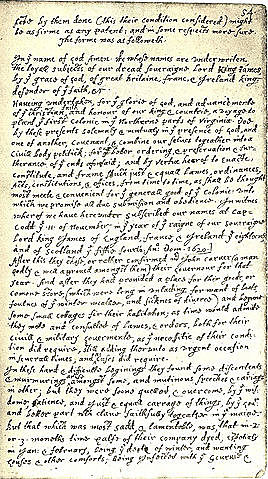 54
sobe by them done (this their condition considered) might
be as firme as any patent; and in some respects more sure.
The forme was as followeth.
In ye name of god Amen. We whose names are underwriten,
the loyall subjects of our dread soveraigne Lord King James
by ye grace of god, of great Britaine, franc, & Ireland king,
defender of ye faith, &c
Haveing undertaken, for ye glorie of god, and advancemente
of ye christian faith and honour of our king & countrie, a voyage to
plant ye first colonie in ye Northerne parts of virginia. Doe
by these presents solemnly & mutualy in ye presence of god, and
one of another, covenant, & combine our selves togeather into a
civill body politick; for our better ordering, & preservation & fur=
therance of ye ends aforesaid; and by vertue hearof to enacte,
constitute, and frame shuch just & equall Lawes, ordinances,
Acts, constitutions, & offices, from time to time, as shall be thought
most meete & convenient for ye generall good of ye colonie: unto
which we promise all due submission and obedience. In witnes
wherof we have hereunder subscribed our names at Cap=
Codd ye ·11· of November, in ye year of ye raigne of our soveraigne
Lord king James of England, france, & Ireland ye eighteenth
and of Scotland ye fiftie fourth. Ano: Dom 1620
After this they chose, or rather confirmed mr John carver (a man
godly & well approved amongst them) their Governour for that
year. And after they had provided a place for their goods, or
comone store, (which were long in unlading, for want of boats,
foulnes of ye winter weather, and sicknes of diverce) and begune
some small cottages for their habitation; as time would admitte
they mette and consulted of lawes, & orders, both for their
civill, & military Govermente, as ye necessitie of their condi=
tion did require, still adding therunto as urgent occasion
in severall times, and as cases did require.
In these hard & difficulte beginings they found some discontents
& murmurings arise amongst some, and mutinous speeches & cariags
in other; but they were soone quelled, & overcome, by ye wis=
dome, patience, and just & equall carrage of things, by ye Govr
and better part wch clave faithfully togeather in ye maine.
But that which was most sadd, & lamentable, was, that in ·2·
or ·3· moneths time halfe of their company dyed, espetialy
in Jan: & february, being ye depth of winter, and wanting
houses & other comforts; being infected with ye scurvie &